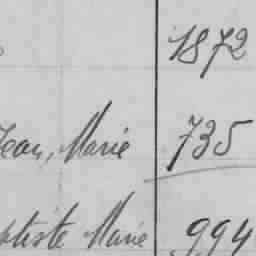 1872
Jean, Marie 735
ptiste Marie 994